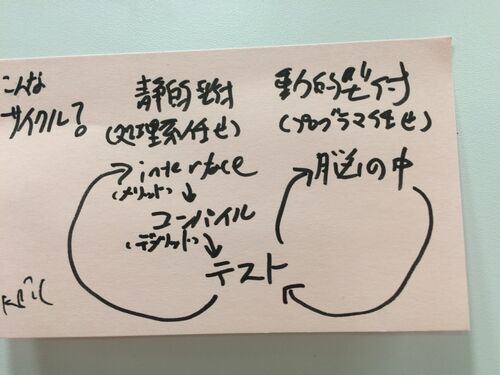 こんな
サイクル?
静的型付
(処理系任せ)
interface
(メリット)
コンパイル
(デメリット)
テスト
動的型付
(プログラマ任せ)
脳の中